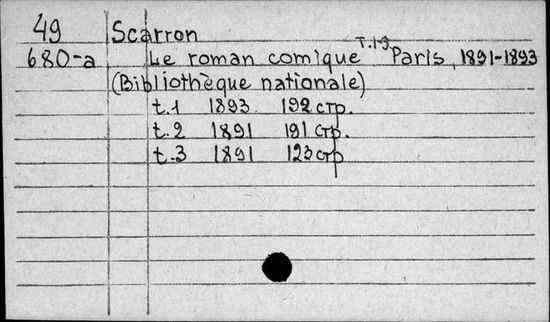 49 Scarron
680-a Le roman comique т.1-3 Paris, 1891-1893
(Bibliothèque nationale)
t.1 1893 192 стр.
t.2 1891 191 стр.
t.3 1891 123 стр